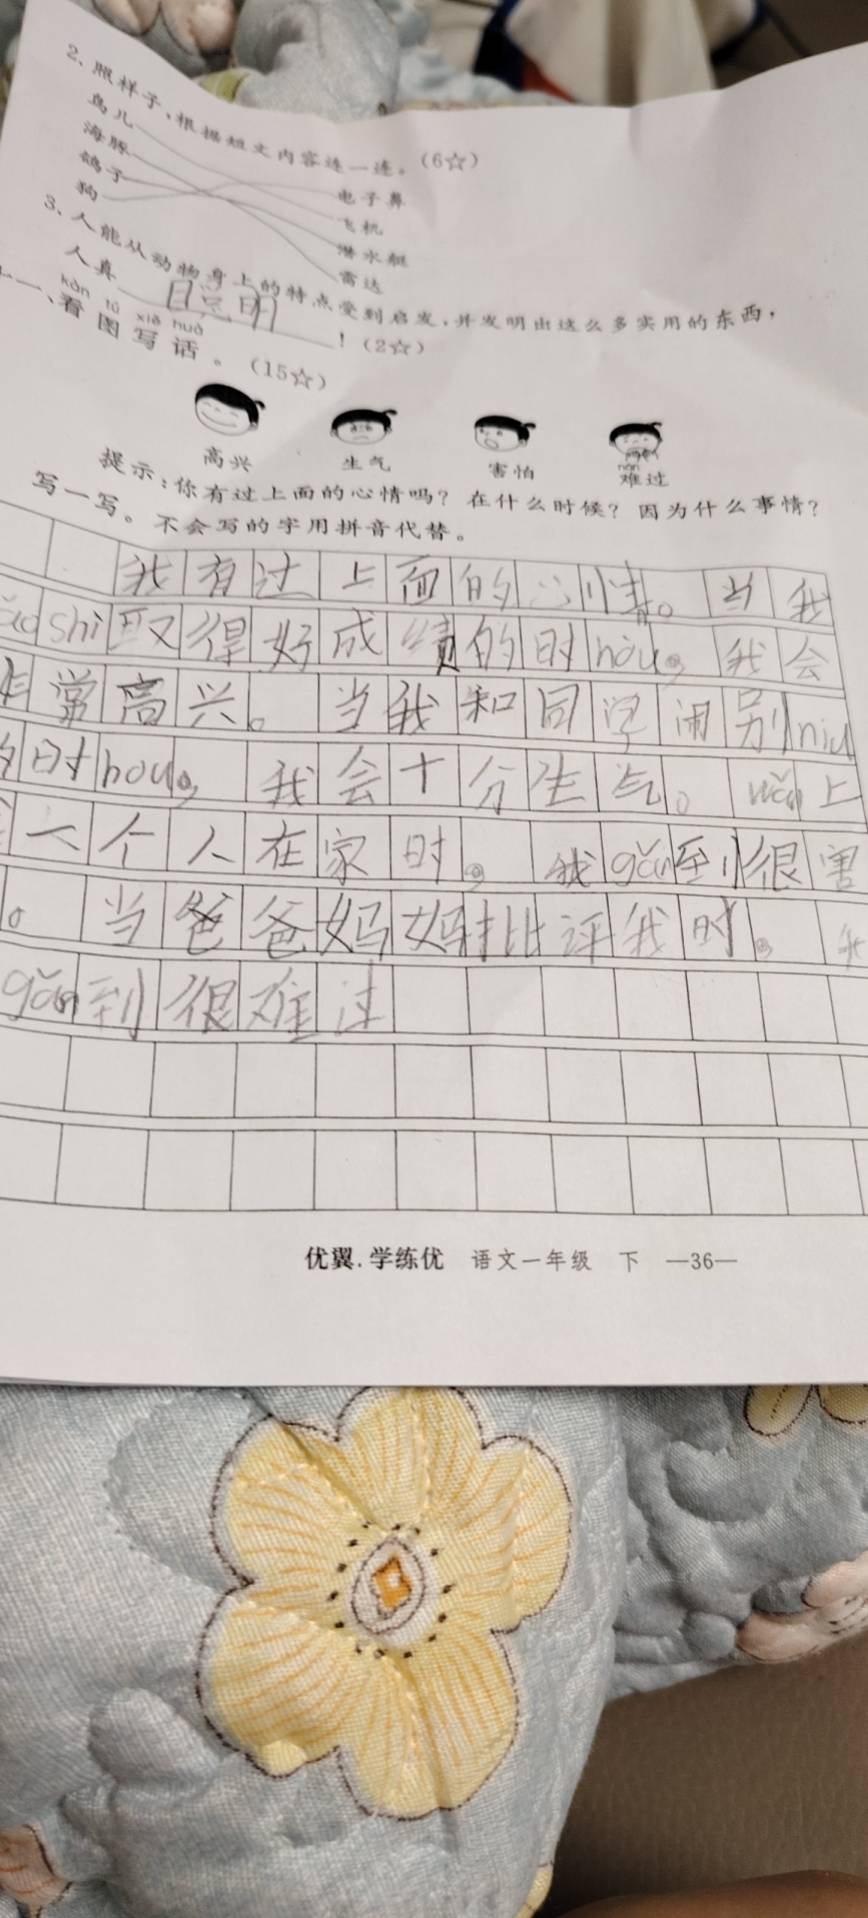 2、照样子,根据短文内容连一连。(6☆)
鸟儿
海豚
鸽子
狗
电子鼻
飞机
潜水艇
雷达
3、人能从动物身上的特点受到启发,并发明出这么多实用的东西,
人真聪明!(2☆)
kàn tú xiě huà
一、看图写话。(15☆)
高兴 生气 害怕 难过
nán
提示:你有过上面的心情吗?在什么时候?因为什么事情?
写一写。不会写的字用拼音代替。
我有过上面的心情。当我
shì取得好成绩的时hòu。我会
非常高兴。当我和同学闹别niu
的时hou。我会十分生气。wǎn上
一个人在家时。我gǎn到很害
。当爸爸妈妈批评我时。我
gǎn到很难过
优翼.学练优 语文一年级 下 —36—